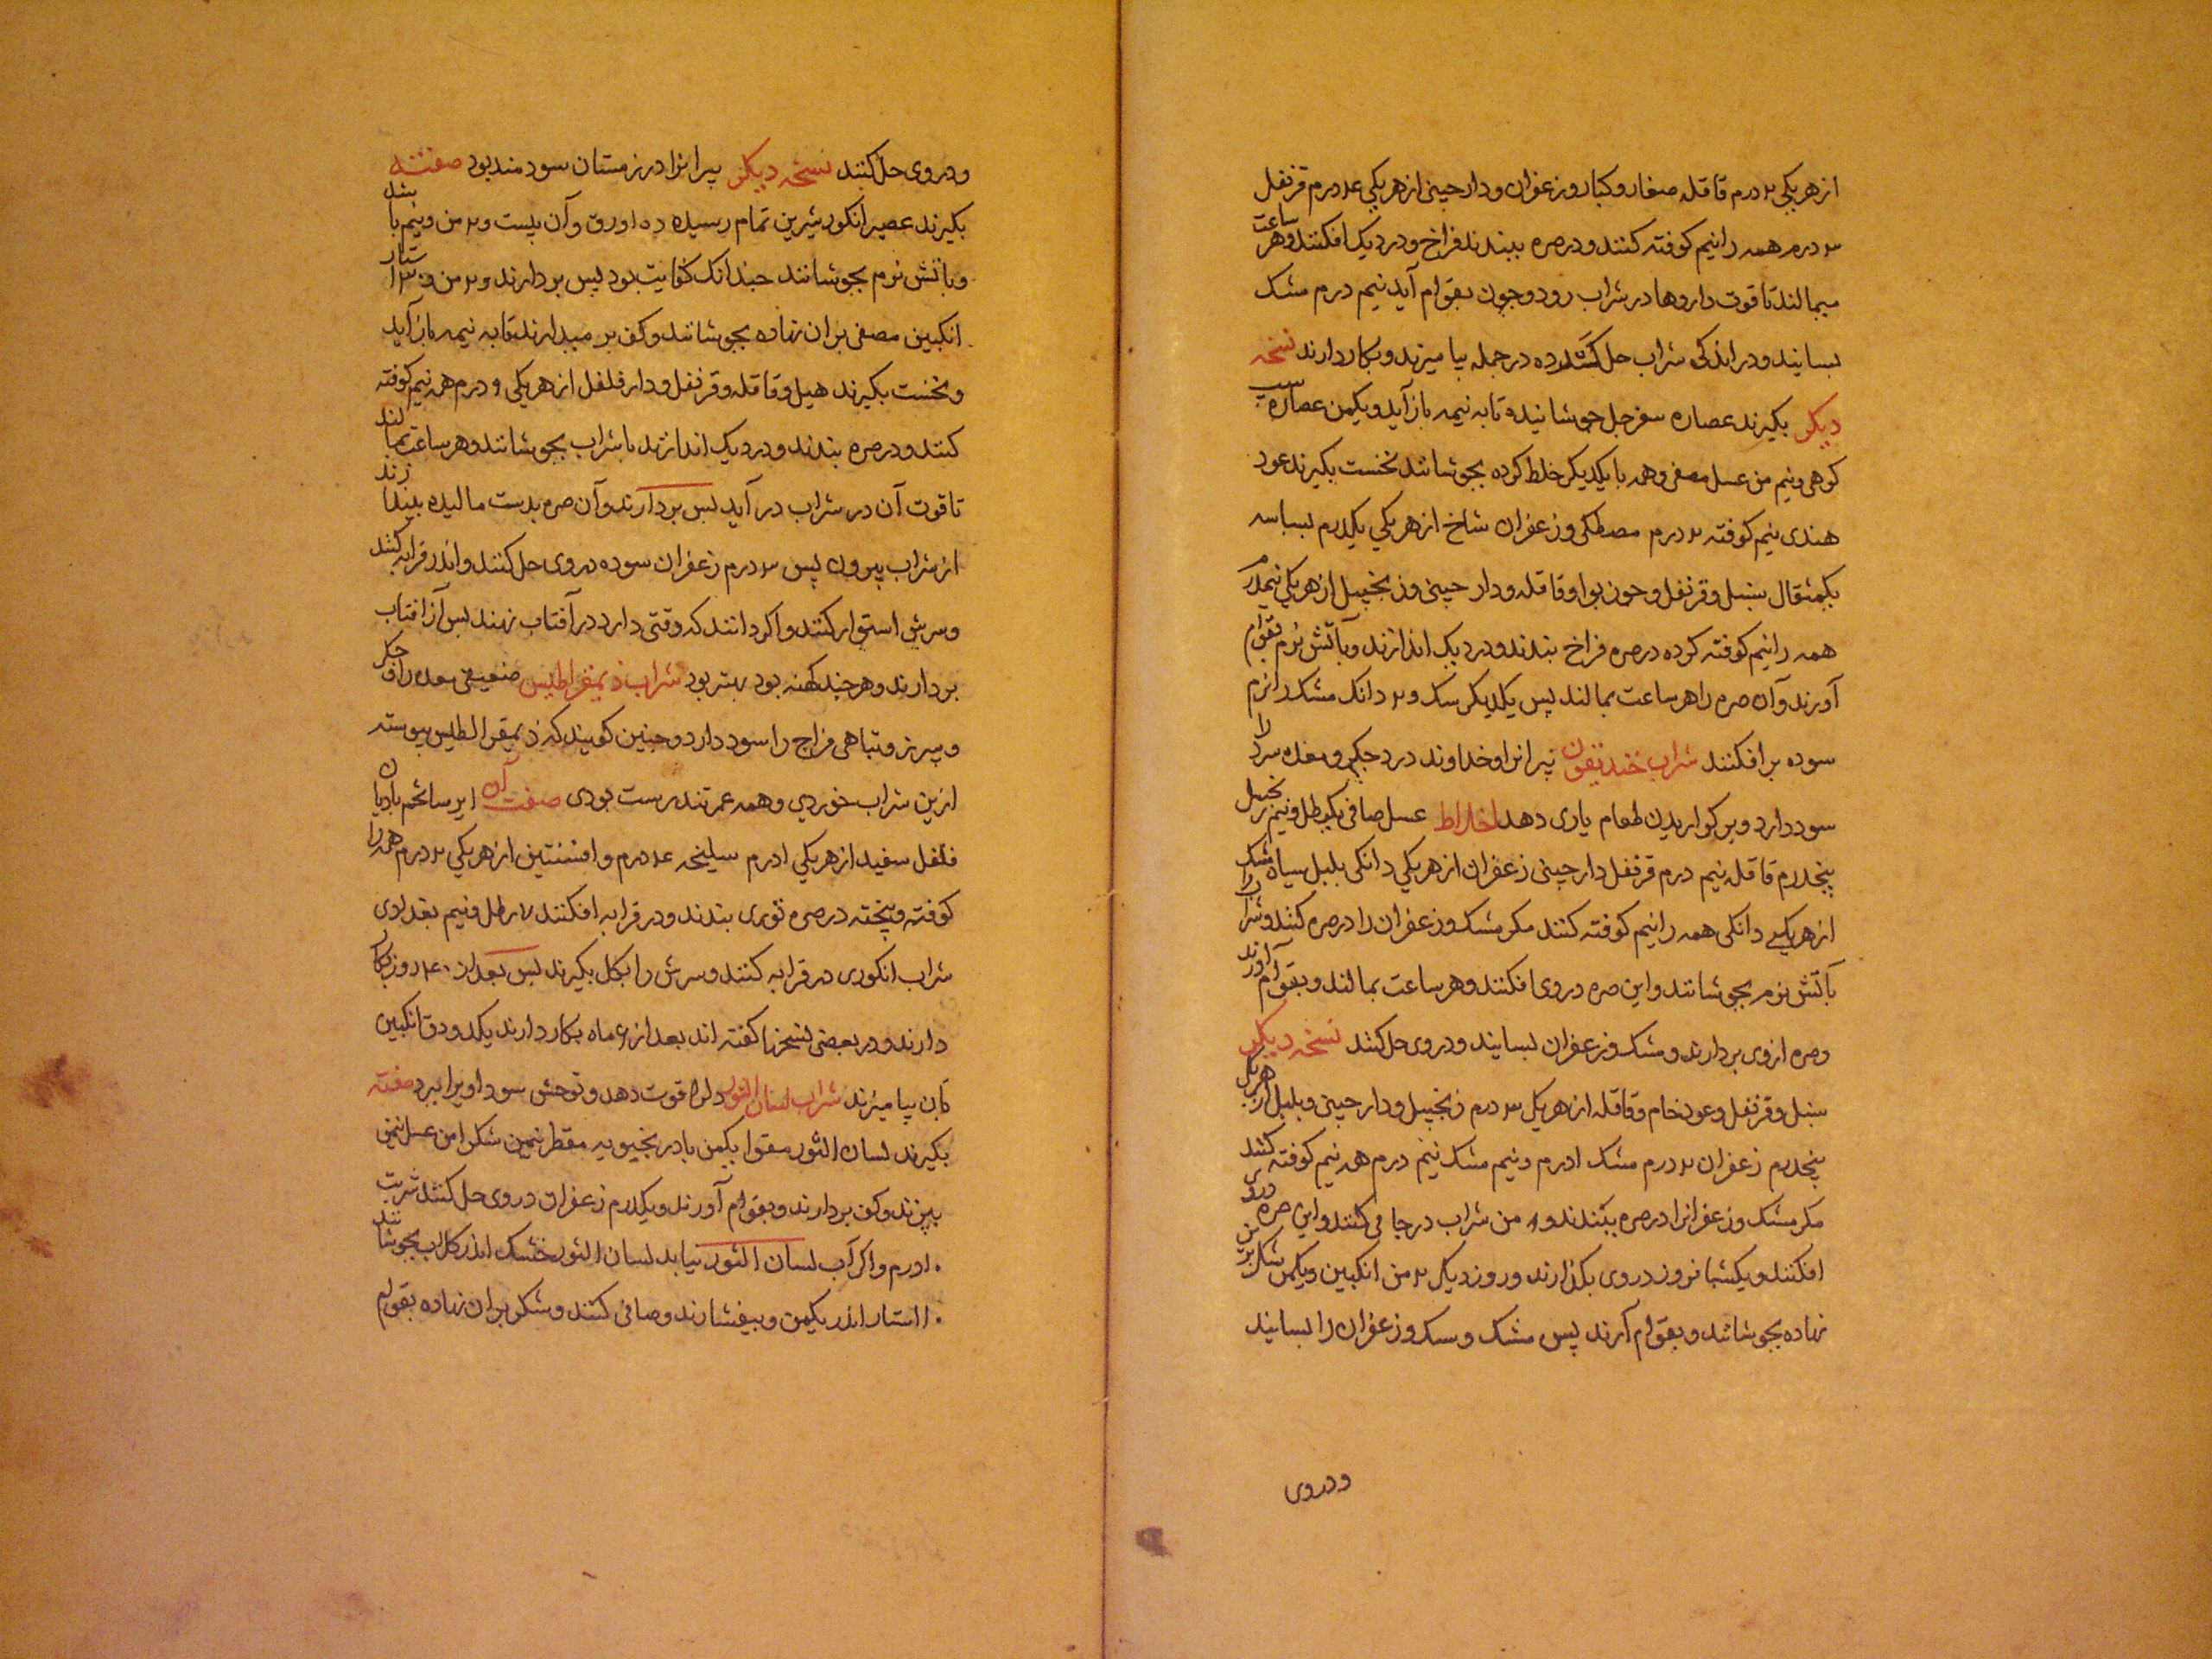 از هر یکی ۲ درم قاقله صغار و کبار و زعفران و دارچینی از هر یکی ۴ درم قرنفل
۳ درم همه را نیم کوفته کنند و در صره ببندند فراخ و در دیک افکنند و هر ساعت
میمالند تا قوت داروها در شراب رود و چون بقوام آید نیم درم مشک
بسایند و در اندکی شراب حل کرده در جمله بیامیزند و بکار دارند نسخه
دیکر بکیرند عصاره سفرجل جوشانیده تا به نیمه باز آید و یکمن عصاره سیب
کوهی و نیم من عسل مصفی و همه با یکدیکر خلط کرده بجوشانند نخست بکیرند عود
هندی نیم کوفته ۲ درم مصطکی و زعفران شاخ از هر یکی یکدرم بسباسه
یکمثقال سنبل و قرنفل و جوز بوا و قاقله و دار چینی و زنجبیل از هر یکی نیمدرم
همه را نیم کوفته کرده در صره فراخ بندند و در دیک اندازند و بآتش نرم بقوام
آورند و آن صره را هر ساعت بمالند پس یکدیکر سک و ۲ دانک مشک را نرم
سوده بر افکنند شراب خندیقون پیرانرا و خداوند درد جکر و معده سرد را
سود دارد و بر کواریدن طعام یاری دهد اخلاط عسل صافی یکرطل و نیم زنجبیل
پنجدرم قاقله نیم درم قرنفل دارچینی زعفران از هر یکی دانکی بلبل سیاه مشک
از هر یکی دانکی همه را نیم کوفته کنند مکر مشک و زعفران را در صره کنند و شراب را
بآتش نرم بجوشانند و این صره در وی افکنند و هر ساعت بمالند و بقوام آورند
و صره از وی بردارند و مشک و زعفران بسایند و در وی حل کنند نسخه دیکر
سنبل و قرنفل و عود خام و قاقله از هر یکی ۳ درم زنجبیل و دارچینی و بلبل از هر یکی
پنجدرم زعفران ۲ درم مشک ا درم و نیم مشک نیم درم همه نیم کوفته کنند
مکر مشک و زعفرانرا در صره ببندند و من شراب در جامی کنند و این صره در وی
افکنند و یکشبانروز در وی بکذارند و روز دیکر ۲ من انکبین و یکمن شکر برین
نهاده بجوشانند و بقوام آرند پس مشک و سک و زعفران را بسایند
و در وی
و در وی حل کنند نسخه دیکر پیرانرا در زمستان سودمند بود صفته
بکیرند عصیر انکور شیرین تمام رسیده ده اورق و آن بیست و ۲ من و نیم باشد
و بآتش نرم بجوشانند چندانک کفایت بود پس بردارند و ۲ من و ۱۳۰ ستار
انکبین مصفی بران نهاده بجوشانند و کف بر میدارند تا به نیمه باز آید
و نخست بکیرند هیل و قاقله و قرنفل و دار فلفل از هر یکی و درم همه نیم کوفته
کنند و در صره بندند و در دیک اندازند با شراب بجوشانند و هر ساعت بمالند
تا قوت آن در شراب در آید پس بردارند و آن صره بدست مالیده بیندازند
از شراب بیرون پس ۳ درم زعفران سوده در وی حل کنند و اندر قرابه کنند
و سرش استوار کنند و اکر دانند که وقتی دارد در آفتاب نهند پس از آفتاب
بردارند و هر چند کهنه بود بهتر بود شراب ذیمقراطیس ضعیفی معده را و جکر
و سپرز و تباهی مزاج را سود دارد و چنین کویند که ذیمقراطیس پیوسته
ازین شراب خوردی و همه عمر تندرست بودی صفت آن ایرسا تخم بادیان
فلفل سفید از هر یکی ا درم سلیخه ۴ درم و افسنتین از هر یکی ۲ درم همه را
کوفته و بیخته در صره توری بندند و در قرابه افکنند ۷ رطل و نیم بغدادی
شراب انکوری در قرابه کنند و سرش را بکل بکیرند پس بعد از ۴۰ روز بکار
دارند و در بعضی نسخها کفته اند بعد از ۶ ماه بکار دارند یکدورق انکبین
بآن بیامیزند شراب لسان الثور دلرا قوت دهد و توحش سوداوی را ببرد صفته
بکیرند لسان الثور مقوا یکمن بادرنجبویه مقطر نیمن شکر ا من عسل نیمن
بپزند و کف بردارند و بقوام آورند و یکدرم زعفران در وی حل کنند شربت
۱۰ درم و اکر آب لسان الثور نیابد لسان الثور خشک اندر کلاب بجوشانند
۱۰ استار اندر یکمن و بیفشارند و صافی کنند و شکر بران نهاده بقوام